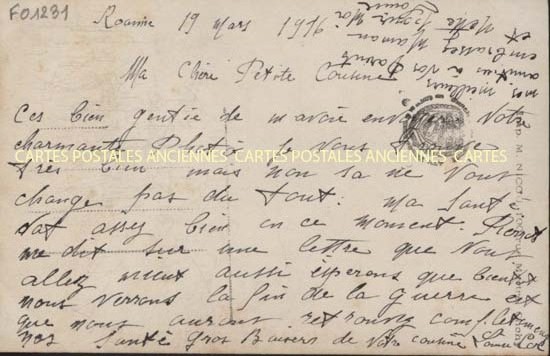 FO1231
Roanne 19 mars 1916
Ma Chère Petite Cousine
Ces bien gentie de m avoir envoyer Votre
charmante Photo je Vous trouve
CARTES POSTALES ANCIENNES CARTES POSTALES ANCIENNES CARTES POSTALES ANCIENNES
tres bien mais non sa ne Vous
change pas du tout. ma Santé
vat assez bien en ce moment.
me dit sur une lettre que Vous
allez mieux aussi esperons que bientot
nous verrons la fin de la Guerre et
que nous auront retrouvé
nos Santé Gros Baisers de Votre cousine
nos meilleurs
amitiés à vos Parents
embrassez Maman
et